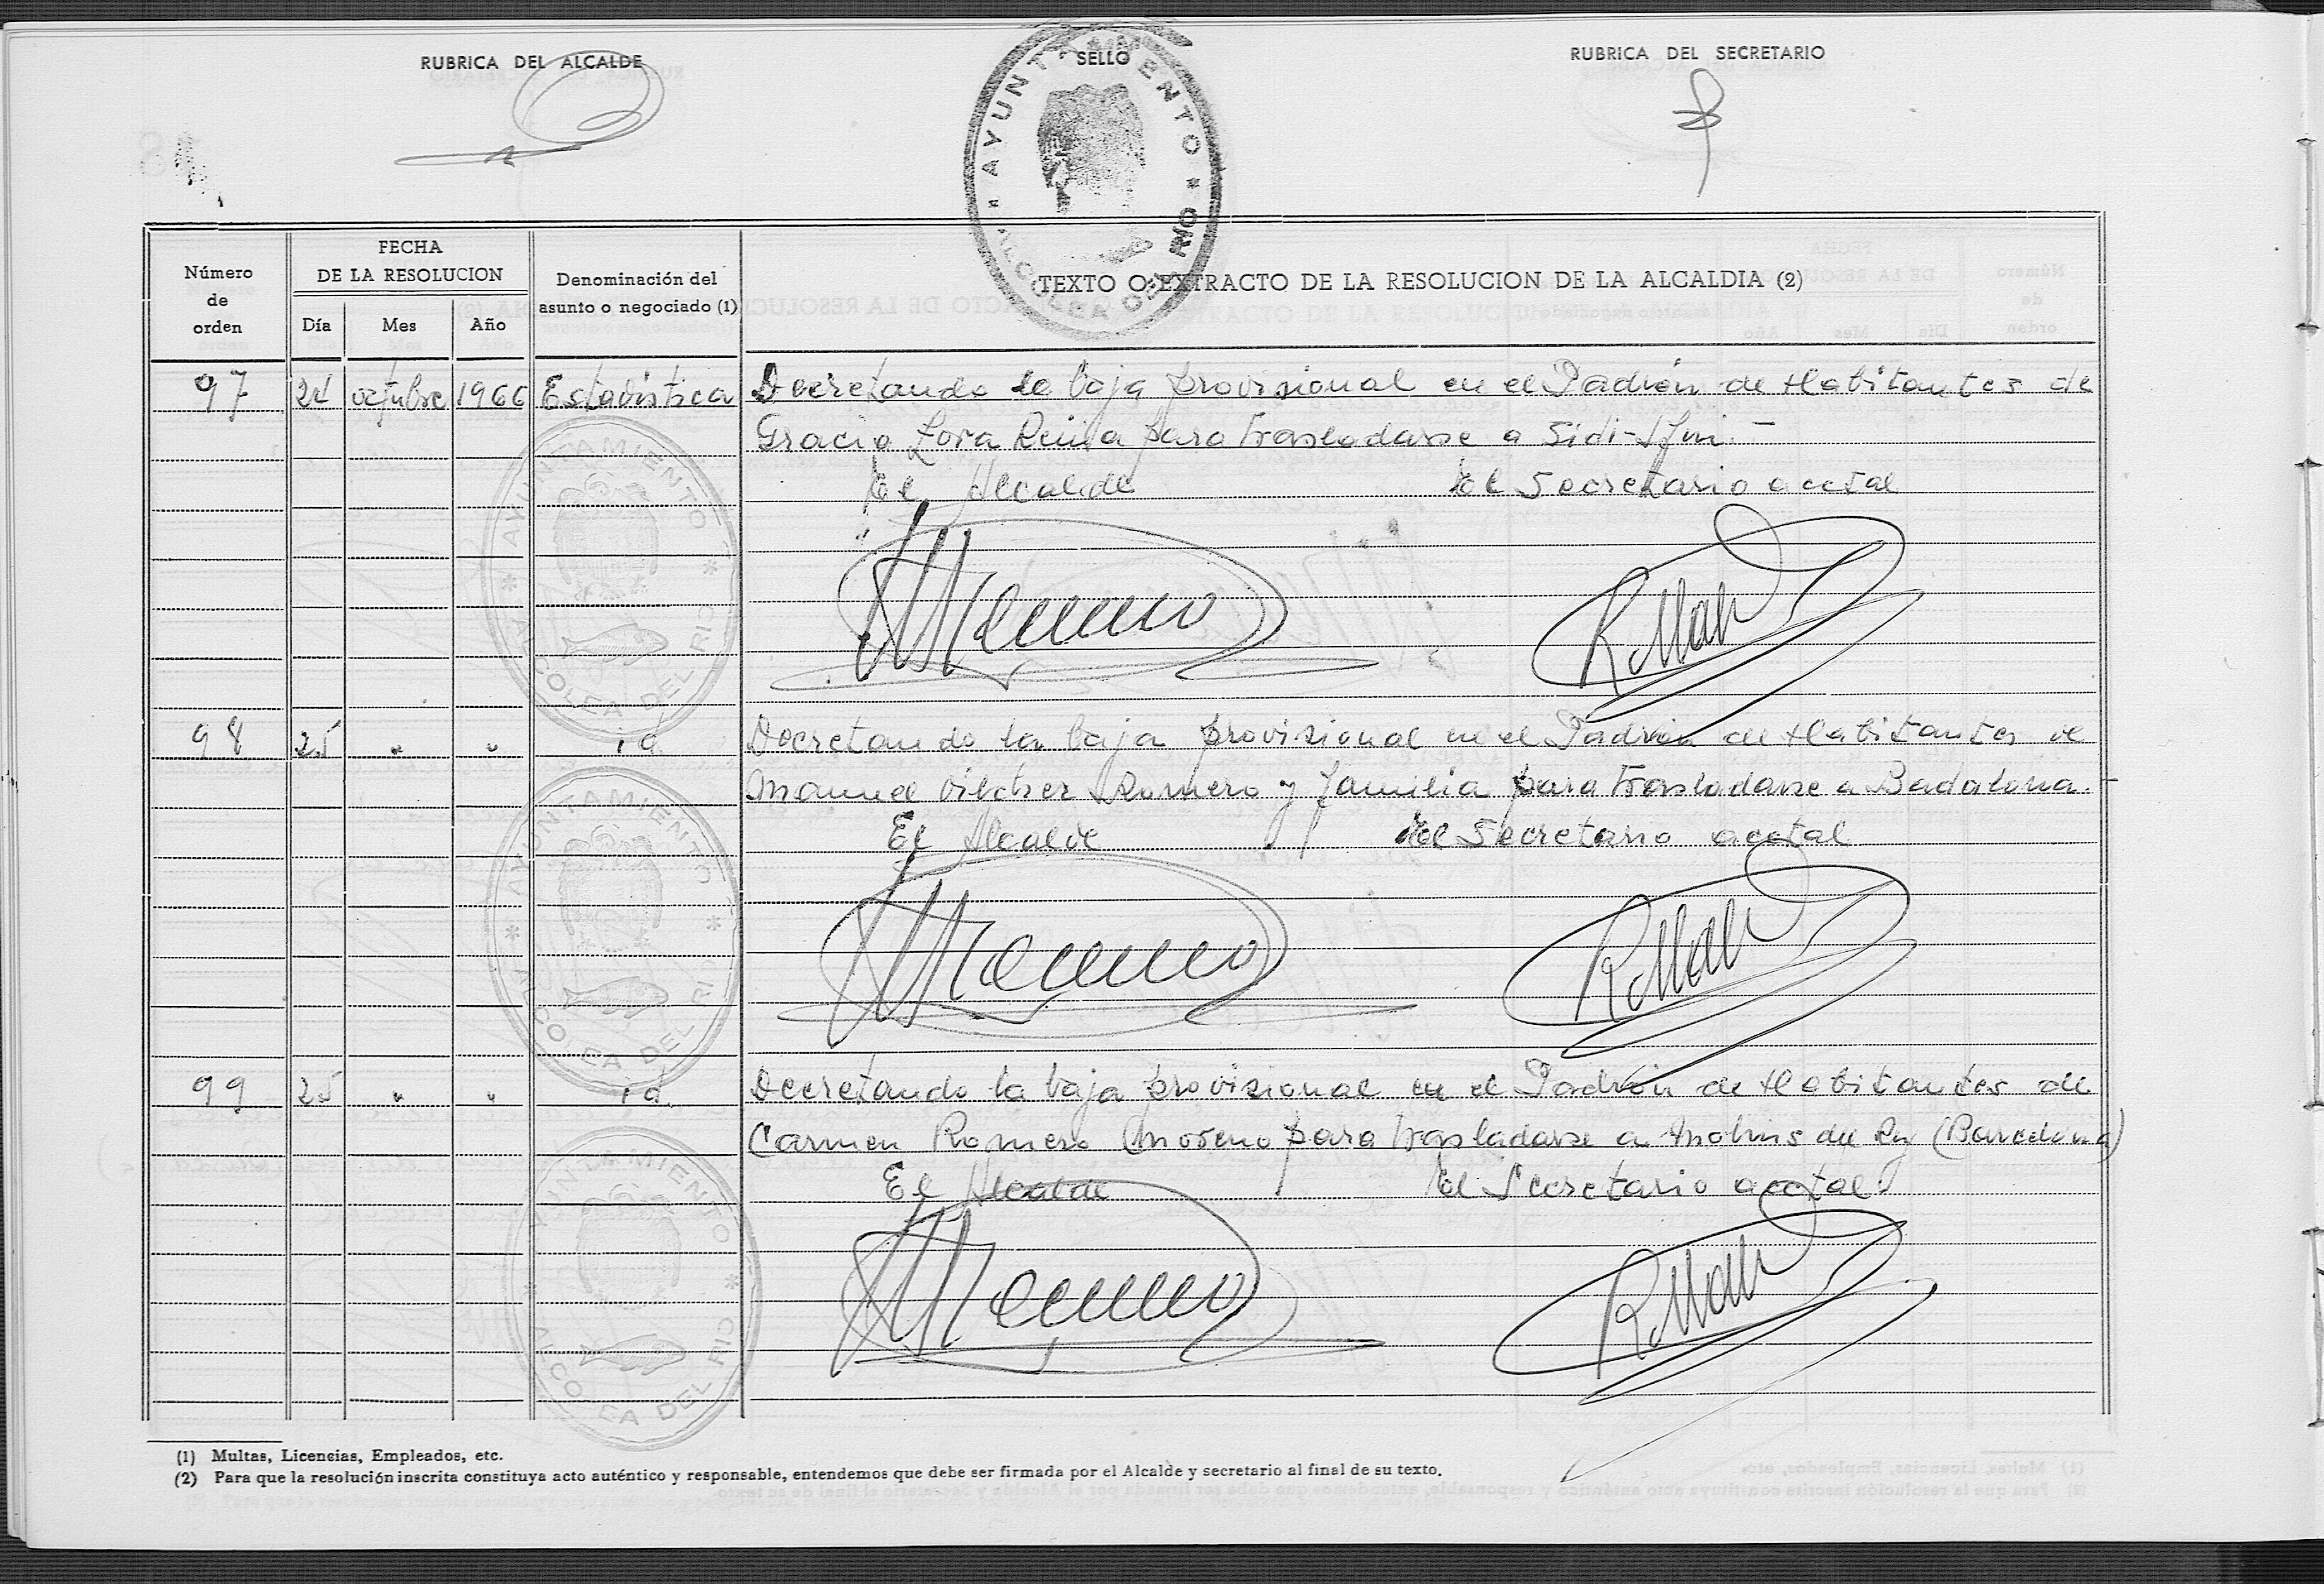 RUBRICA DEL ALCALDE SELLO RUBRICA DEL SECRETARIO
AYUNTAMIENTO * ALCOLEA DEL RIO *
Número de orden
FECHA DE LA RESOLUCION
Día Mes Año
Denominación del asunto o negociado (1)
TEXTO O EXTRACTO DE LA RESOLUCION DE LA ALCALDIA (2)
97 24 octubre 1966 Estadística Decretando la baja provisional en el Padrón de Habitantes de
Gracia Lora Reina para trasladarse a Sidi-Ifni.-
El Alcalde El Secretario acctal
AYUNTAMIENTO * ALCOLEA DEL RIO *
98 25 " " id. Decretando la baja provisional en el Padrón de Habitantes de
Manuel Vilchez Romero y familia para trasladarse a Badalona.-
El Alcalde El Secretario acctal
AYUNTAMIENTO * ALCOLEA DEL RIO *
99 25 " " id. Decretando la baja provisional en el Padrón de Habitantes de
Carmen Romero Moreno para trasladarse a Molins del Rey (Barcelona)
El Alcalde El Secretario acctal.
AYUNTAMIENTO * ALCOLEA DEL RIO *
(1) Multas, Licencias, Empleados, etc.
(2) Para que la resolución inscrita constituya acto auténtico y responsable, entendemos que debe ser firmada por el Alcalde y secretario al final de su texto.